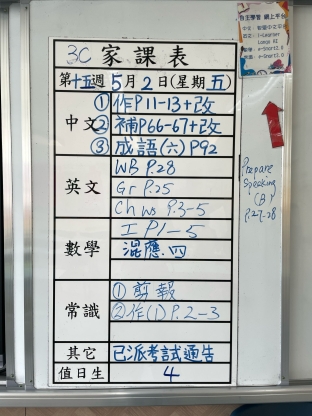 3C 家課表
第十五週 5月2日(星期五)
中文
①作P11-13+改
②補P66-67+改
③成語(六)P92
英文
WB P.28
Gr P.25
Ch ws P.3-5
數學
工P1-5
混應.四
常識
①剪報
②作(1)P.2-3
其它
已派考試通告
值日生
4
自主學習 網上平台
Prepare
Speaking
(B)
P.27-28